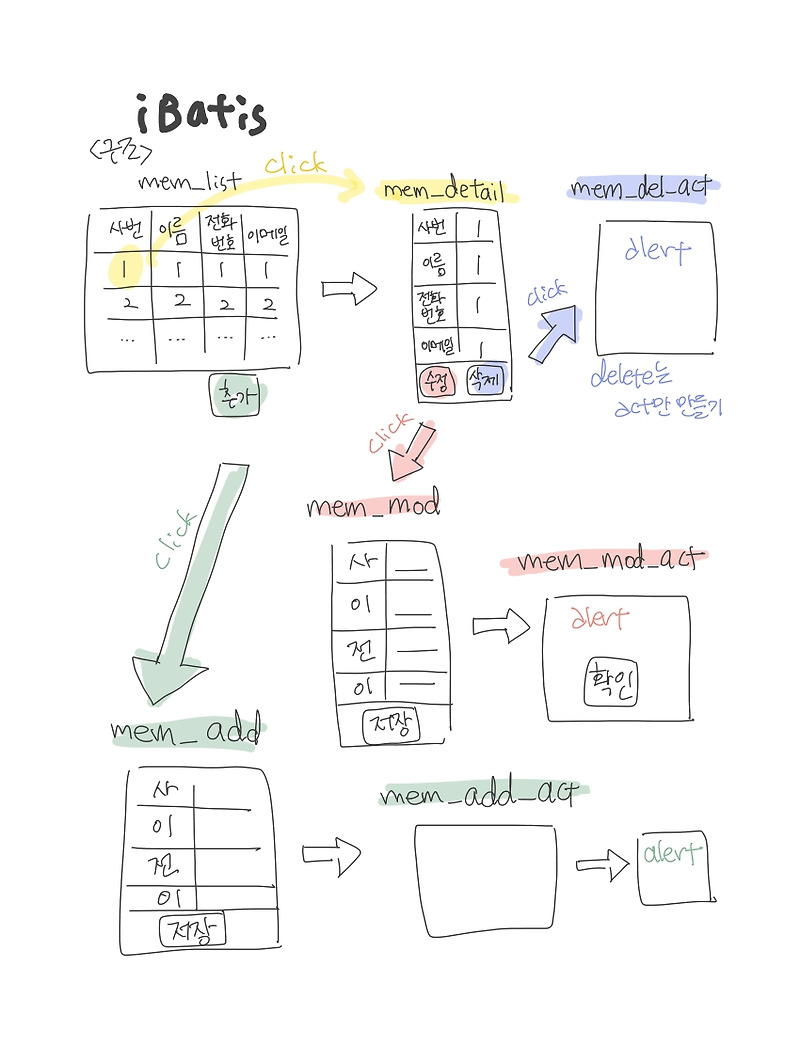 iBatis
<구조>
mem_list
click
사번 이름 전화번호 이메일
1 1 1 1
2 2 2 2
... ... ... ...
추가
mem_detail
사번 1
이름 1
전화번호 1
이메일 1
수정 삭제
click
mem_del_act
alert
delete는
act만 만들기
click
mem_mod
사
이
전
이
저장
mem_mod_act
alert
확인
click
mem_add
사
이
전
이
저장
mem_add_act
alert